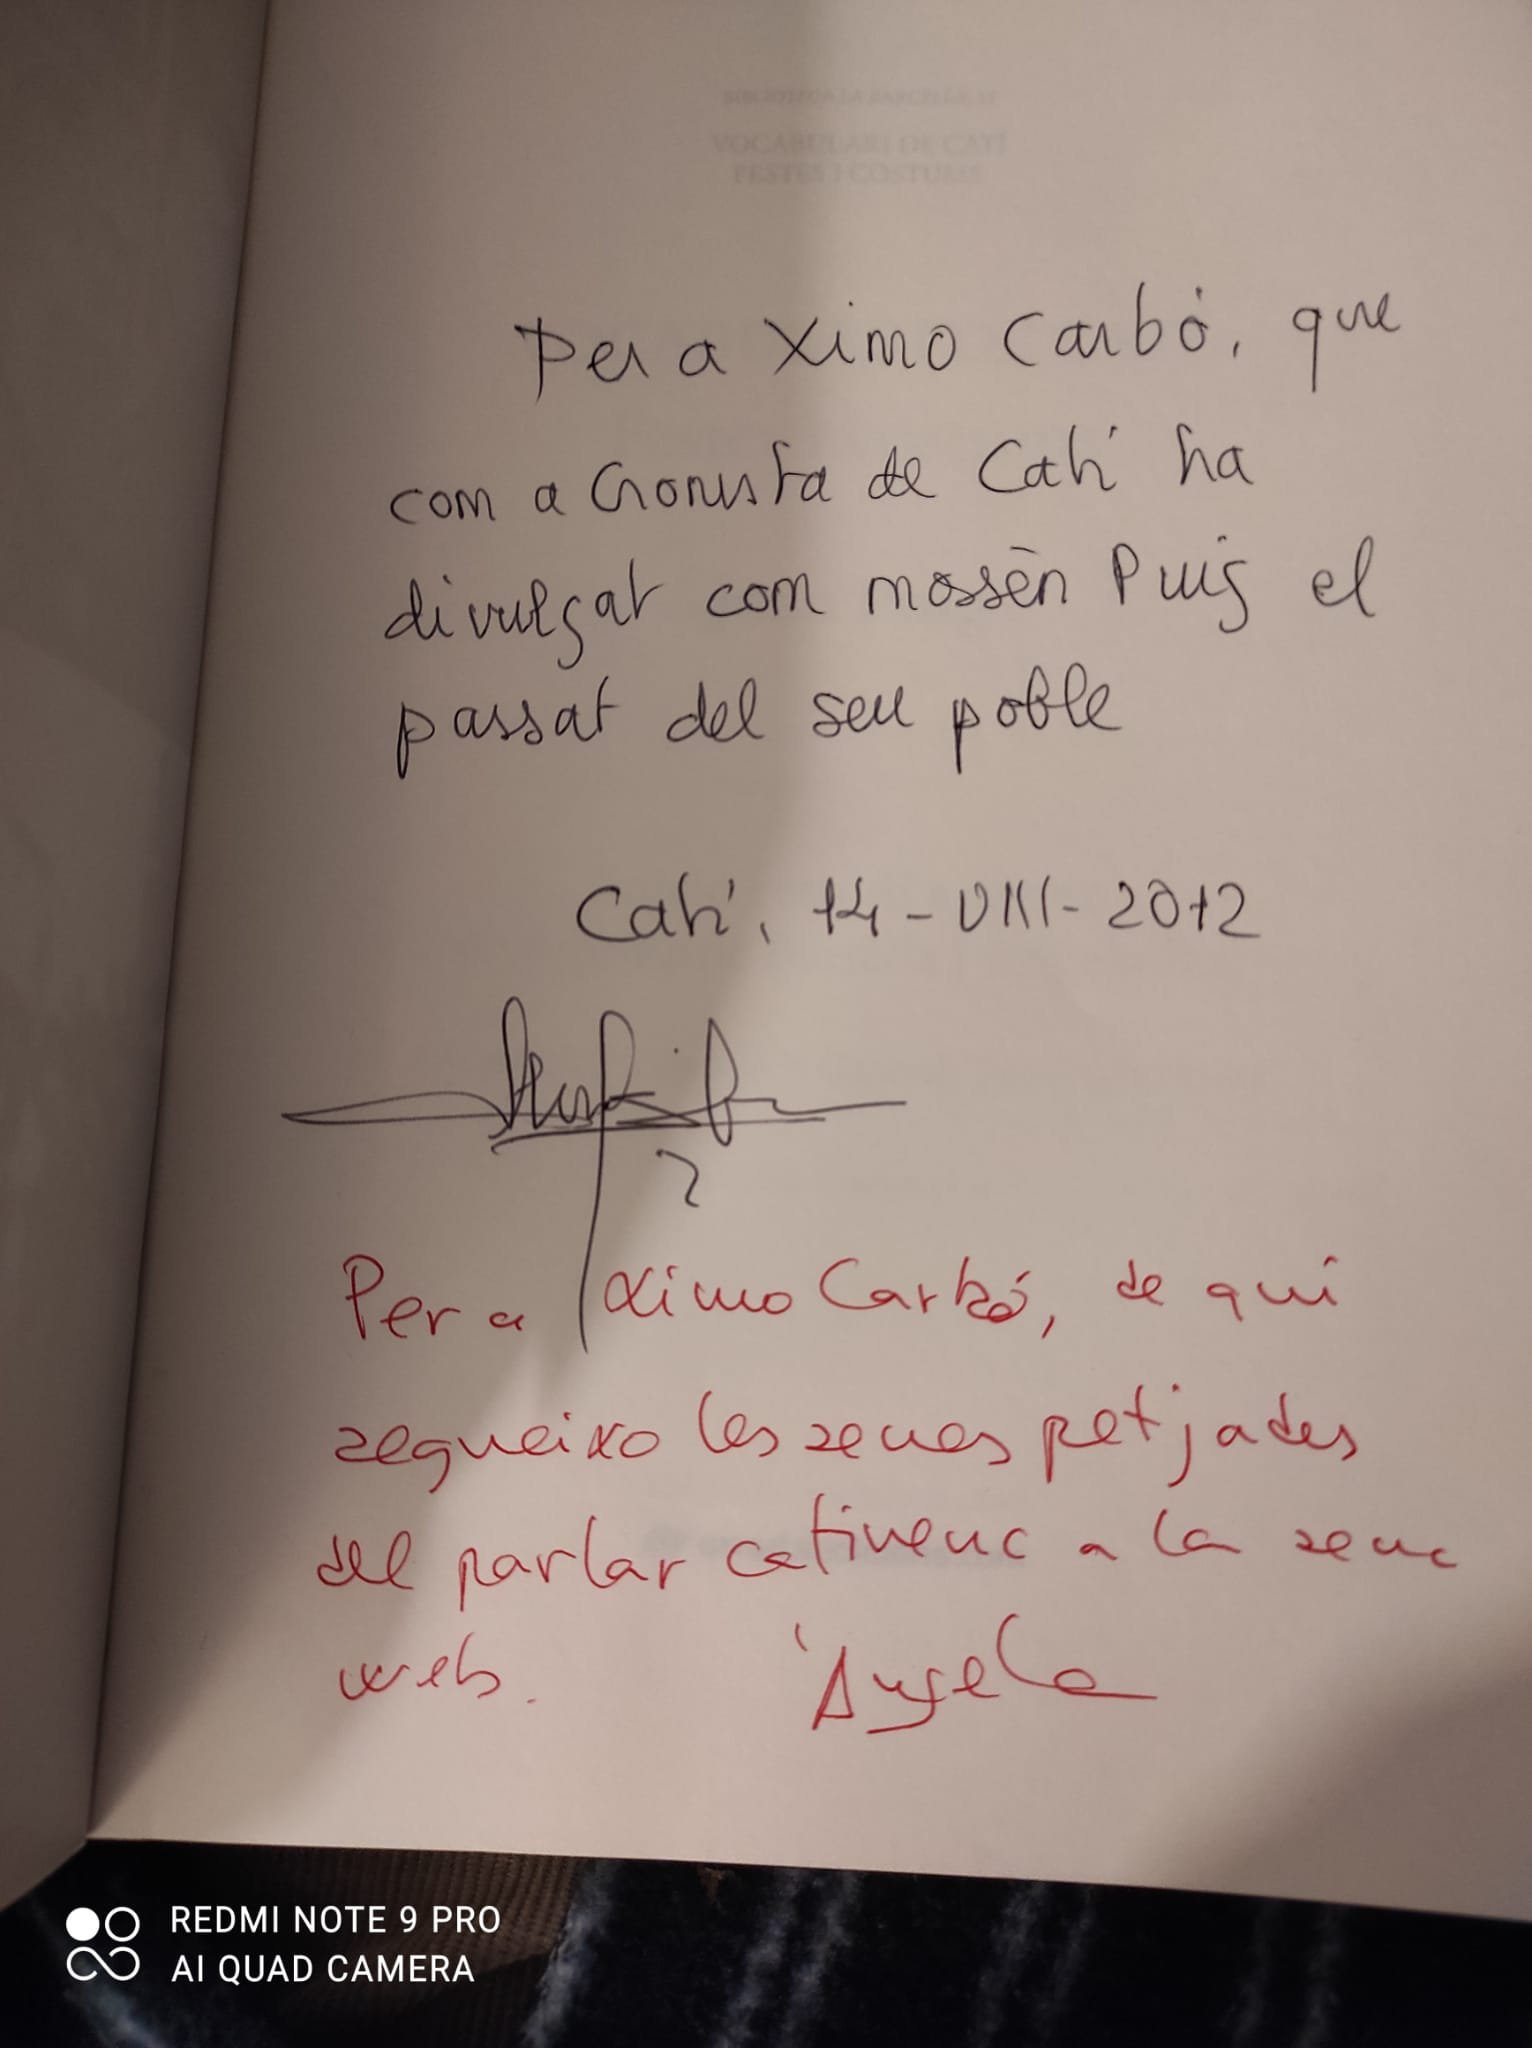 VOCABULARI DE CATÍ
FESTES I COSTUMS
Per a Ximo Carbó, que
com a Cronista de Catí ha
divulgat com mossèn Puig el
passat del seu poble
Catí, 14-VIII-2012
Per a Ximo Carbó, de qui
segueixo les seues petjades
del parlar cativenc a la seua
web. Àngela
REDMI NOTE 9 PRO
AI QUAD CAMERA